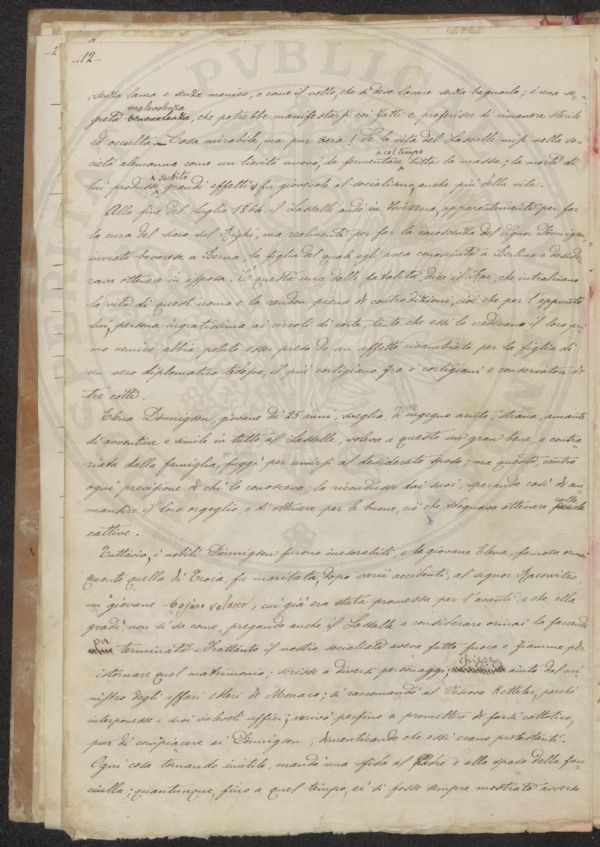 -12-
senza lama e senza manico, o come il votto, che si deve lavare senza bagnarlo; è una se-
greta malevolenza, che potrebbe manifestarsi coi fatti e preferisce di rimanere sterile
ed occulta. Cosa mirabile, ma pur vera! Se la vita del Lassalle mise nella so-
cietà alemanna come un lievito nuovo, da fermentare col tempo tutta la massa; la morte di
lui produsse subito grandi effetti e fu giovevole al socialismo, anche più della vita.
Alla fine del luglio 1864 il Lassalle andò in Isvizzera, apparentemente per far
la cura del siero sul Righi, ma realmente per far la conoscenza del signor Dönnigsen
inviato bavarese a Berna, la figlia del quale egli avea conosciuta a Berlino e deside-
rava ottenere in isposa. È questa una delle fatalità, dice il        , che intralciano
la vita di quest'uomo e la rendon piena di contraddizioni, cioè che per l'appunto
lui, persona ingratissima ai circoli di corte, tanto che essi lo credevano il loro pri-
mo nemico, abbia potuto esser preso da un affetto ricambiato per la figlia di
un vero diplomatico tedesco, il più cortigiano fra i cortigiani e conservatore di
tre cotte.
Elena Dönnigsen, giovane di 25 anni, sveglia, di ingegno acuto, strana, amante
di avventure e simile in tutto al Lassalle, voleva a questo un gran bene, e contra-
riata dalla famiglia, fuggì per unirsi al desiderato sposo; ma questi, contro
ogni previsione di chi lo conosceva, la ricondusse dai suoi, sperando così di am-
mantire il loro orgoglio, e di ottenere per le buone, ciò che sdegnava ottenere colle
cattive.
Tuttavia, i nobili Dönnigsen furono inesorabili, e la giovane Elena, famosa ormai
quanto quella di Troia, fu maritata, dopo varii accidenti, al signor Racowitza,
un giovane bojaro valacco, cui già era stata promessa per l'avanti; e che ella
gradì non si sa come, pregando anche il Lassalle a considerare ormai la faccenda
per terminata. Frattanto il nostro socialista aveva fatto fuoco e fiamme per
istornare quel matrimonio; scrisse a diversi personaggi, chiese aiuto dal mi-
nistro degli affari esteri di Monaco; si raccomandò al Vescovo Ketteler, perché
interponesse i suoi valevoli uffici; arrivò perfino a promettere di farsi cattolico,
pur di compiacere ai Dönnigsen, dimenticando che essi erano protestanti.
Ogni cosa tornando inutile, mandò una sfida al Padre e allo sposo della fan-
ciulla; quantunque, fino a quel tempo, ei si fosse sempre mostrato avverso